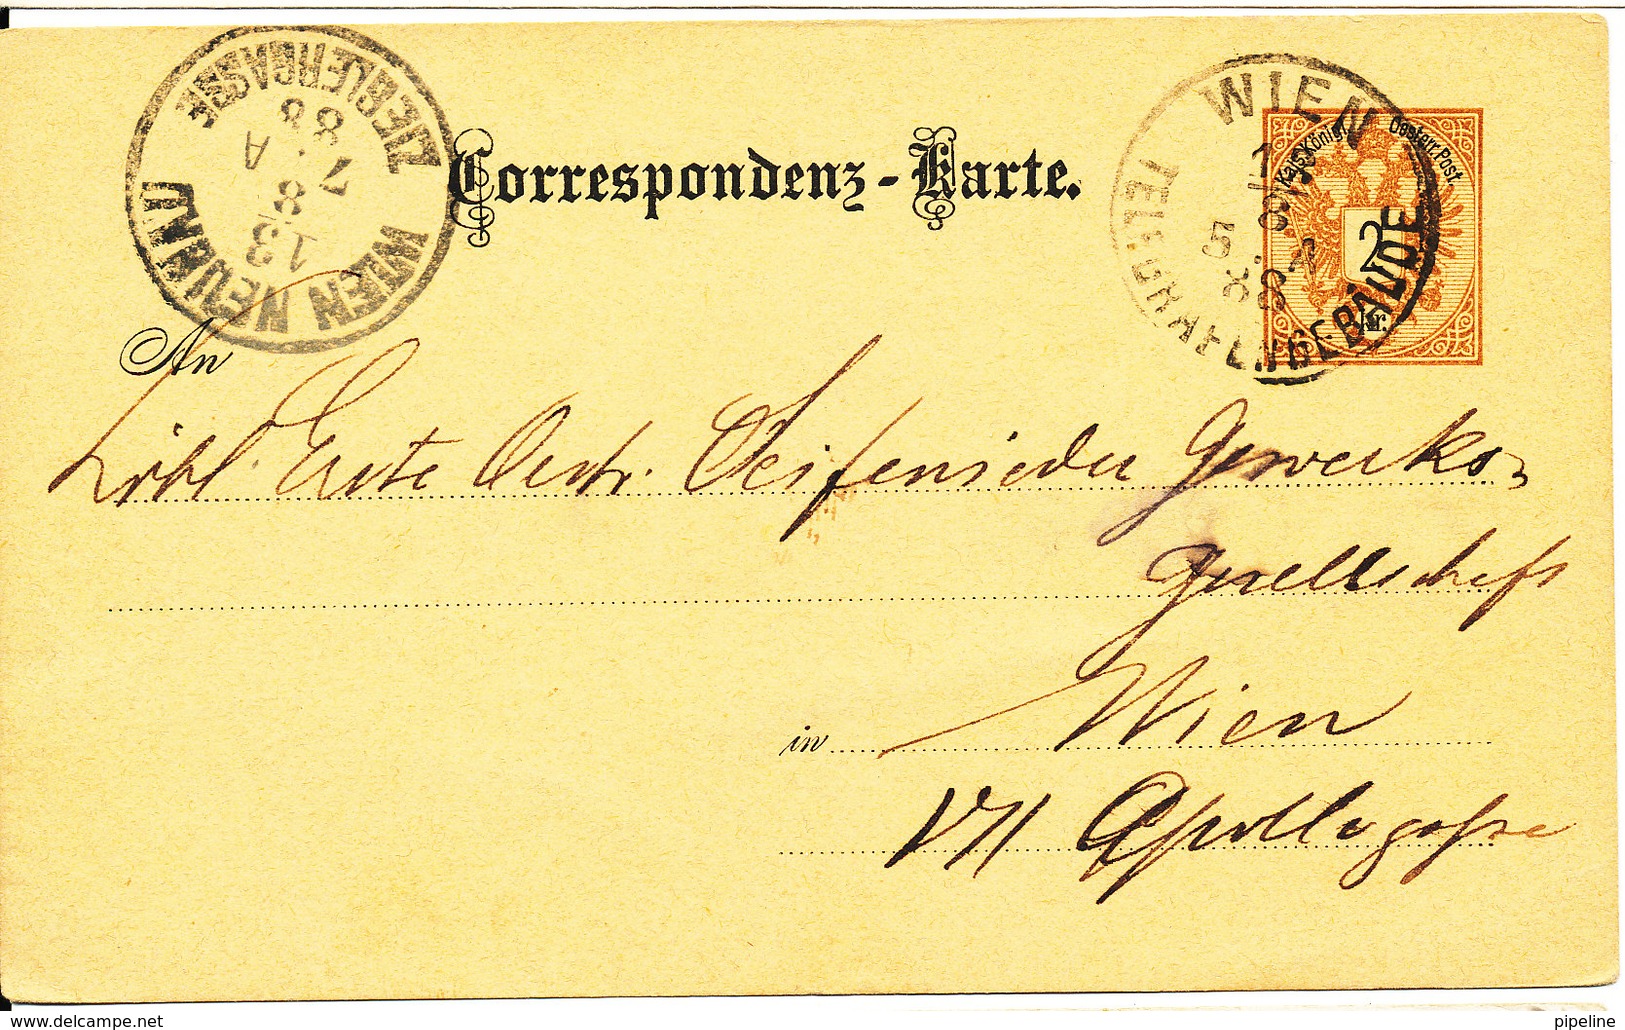 WIEN NEUBAU
13
8
7. A
88
ZIEGLERGASSE
Correspondenz-Karte.
WIEN
TELEGRAFENGEBÄUDE
8
5
88
Kais. Königl. Oesterr. Post.
2
kr.
An
Löbl. Erste Oestr. Seifensieder Gewerks-
Gesellschaft
in Wien
VII Apollogasse
pipeline
delcampe.net